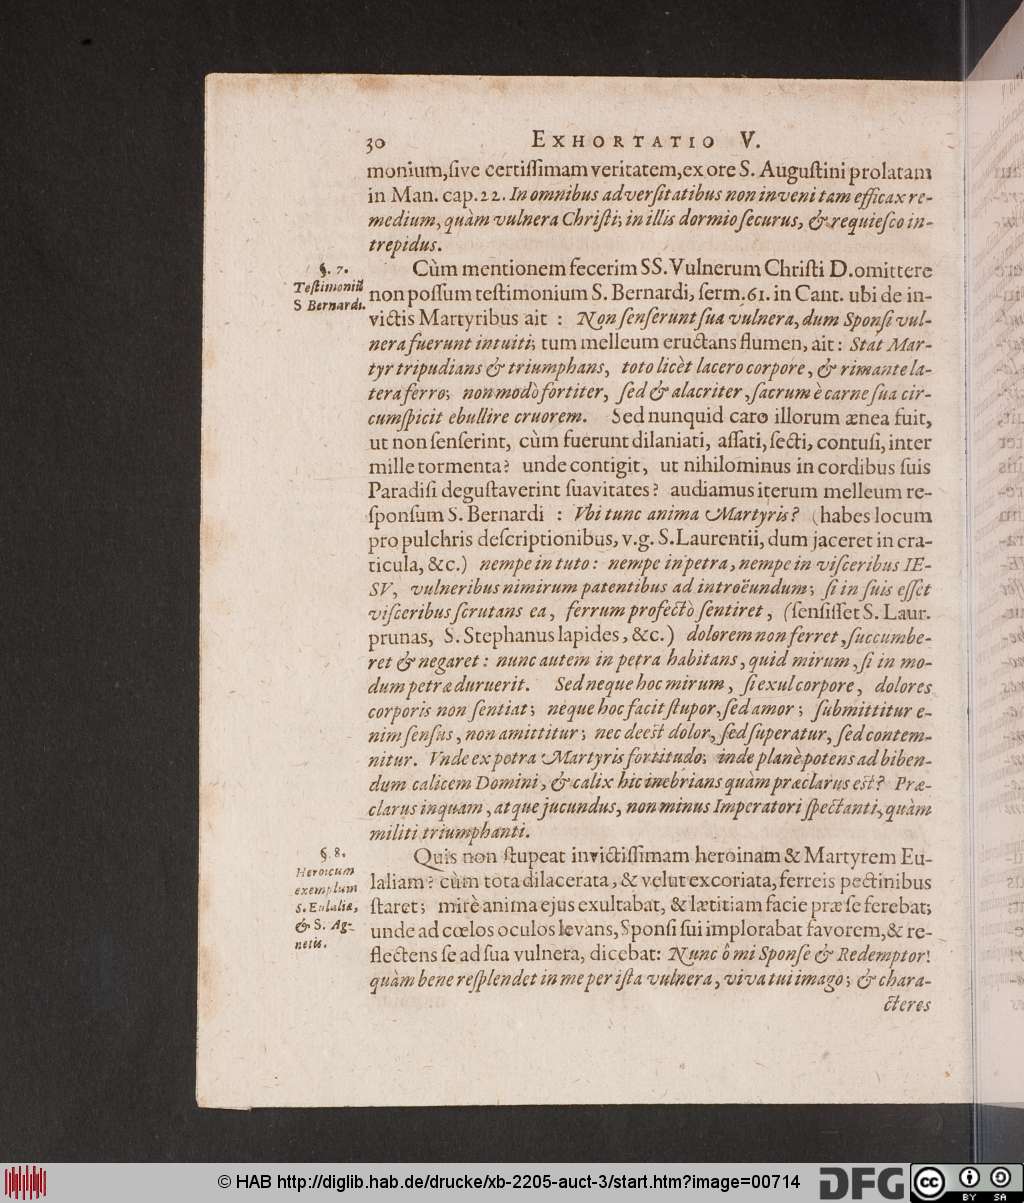 30 EXHORTATIO V.
monium, ſive certiſſimam veritatem, ex ore S. Auguſtini prolatam
in Man. cap. 22. In omnibus adverſitatibus non inveni tam efficax re-
medium, quàm vulnera Chriſti; in illis dormio ſecurus, & requieſco in-
trepidus.
§. 7.
Teſtimoniū
S Bernardi.
Cùm mentionem fecerim SS. Vulnerum Chriſti D. omittere
non poſſum teſtimonium S. Bernardi, ſerm. 61. in Cant. ubi de in-
victis Martyribus ait : Non ſenſerunt ſua vulnera, dum Sponſi vul-
nera fuerunt intuiti; tum melleum eructans flumen, ait: Stat Mar-
tyr tripudians & triumphans, toto licèt lacero corpore, & rimante la-
tera ferro; non modò fortiter, ſed & alacriter, ſacrum è carne ſua cir-
cumſpicit ebullire cruorem. Sed nunquid caro illorum ænea fuit,
ut non ſenſerint, cùm fuerunt dilaniati, aſſati, ſecti, contuſi, inter
mille tormenta? unde contigit, ut nihilominus in cordibus ſuis
Paradiſi deguſtaverint ſuavitates? audiamus iterum melleum re-
ſponſum S. Bernardi : Vbi tunc anima Martyris? (habes locum
pro pulchris deſcriptionibus, v.g. S. Laurentii, dum jaceret in cra-
ticula, &c.) nempe in tuto: nempe in petra, nempe in viſceribus IE-
SV, vulneribus nimirum patentibus ad introëundum; ſi in ſuis eſſet
viſceribus ſcrutans ea, ferrum profectò ſentiret, (ſenſiſſet S. Laur.
prunas, S. Stephanus lapides, &c.) dolorem non ferret, ſuccumbe-
ret & negaret: nunc autem in petra habitans, quid mirum, ſi in mo-
dum petræ duruerit. Sed neque hoc mirum, ſi exul corpore, dolores
corporis non ſentiat; neque hoc facit ſtupor, ſed amor; ſubmittitur e-
nim ſenſus, non amittitur; nec deeſt dolor, ſed ſuperatur, ſed contem-
nitur. Vnde ex petra Martyris fortitudo; inde planè potens ad biben-
dum calicem Domini, & calix hic inebrians quàm præclarus eſt? Præ-
clarus inquam, atque jucundus, non minus Imperatori ſpectanti, quàm
militi triumphanti.
§. 8.
Heroicum
exemplum
S. Eulaliæ,
& S. Ag-
netis.
Quis non ſtupeat invictiſſimam heroinam & Martyrem Eu-
laliam? cùm tota dilacerata, & velut excoriata, ferreis pectinibus
ſtaret; mirè anima ejus exultabat, & lætitiam facie præ ſe ferebat;
unde ad cœlos oculos levans, Sponſi ſui implorabat favorem, & re-
flectens ſe ad ſua vulnera, dicebat: Nunc ô mi Sponſe & Redemptor!
quàm bene reſplendet in me per iſta vulnera, viva tui imago; & chara-
cteres
© HAB http://diglib.hab.de/drucke/xb-2205-auct-3/start.htm?image=00714
DFG
cc BY SA